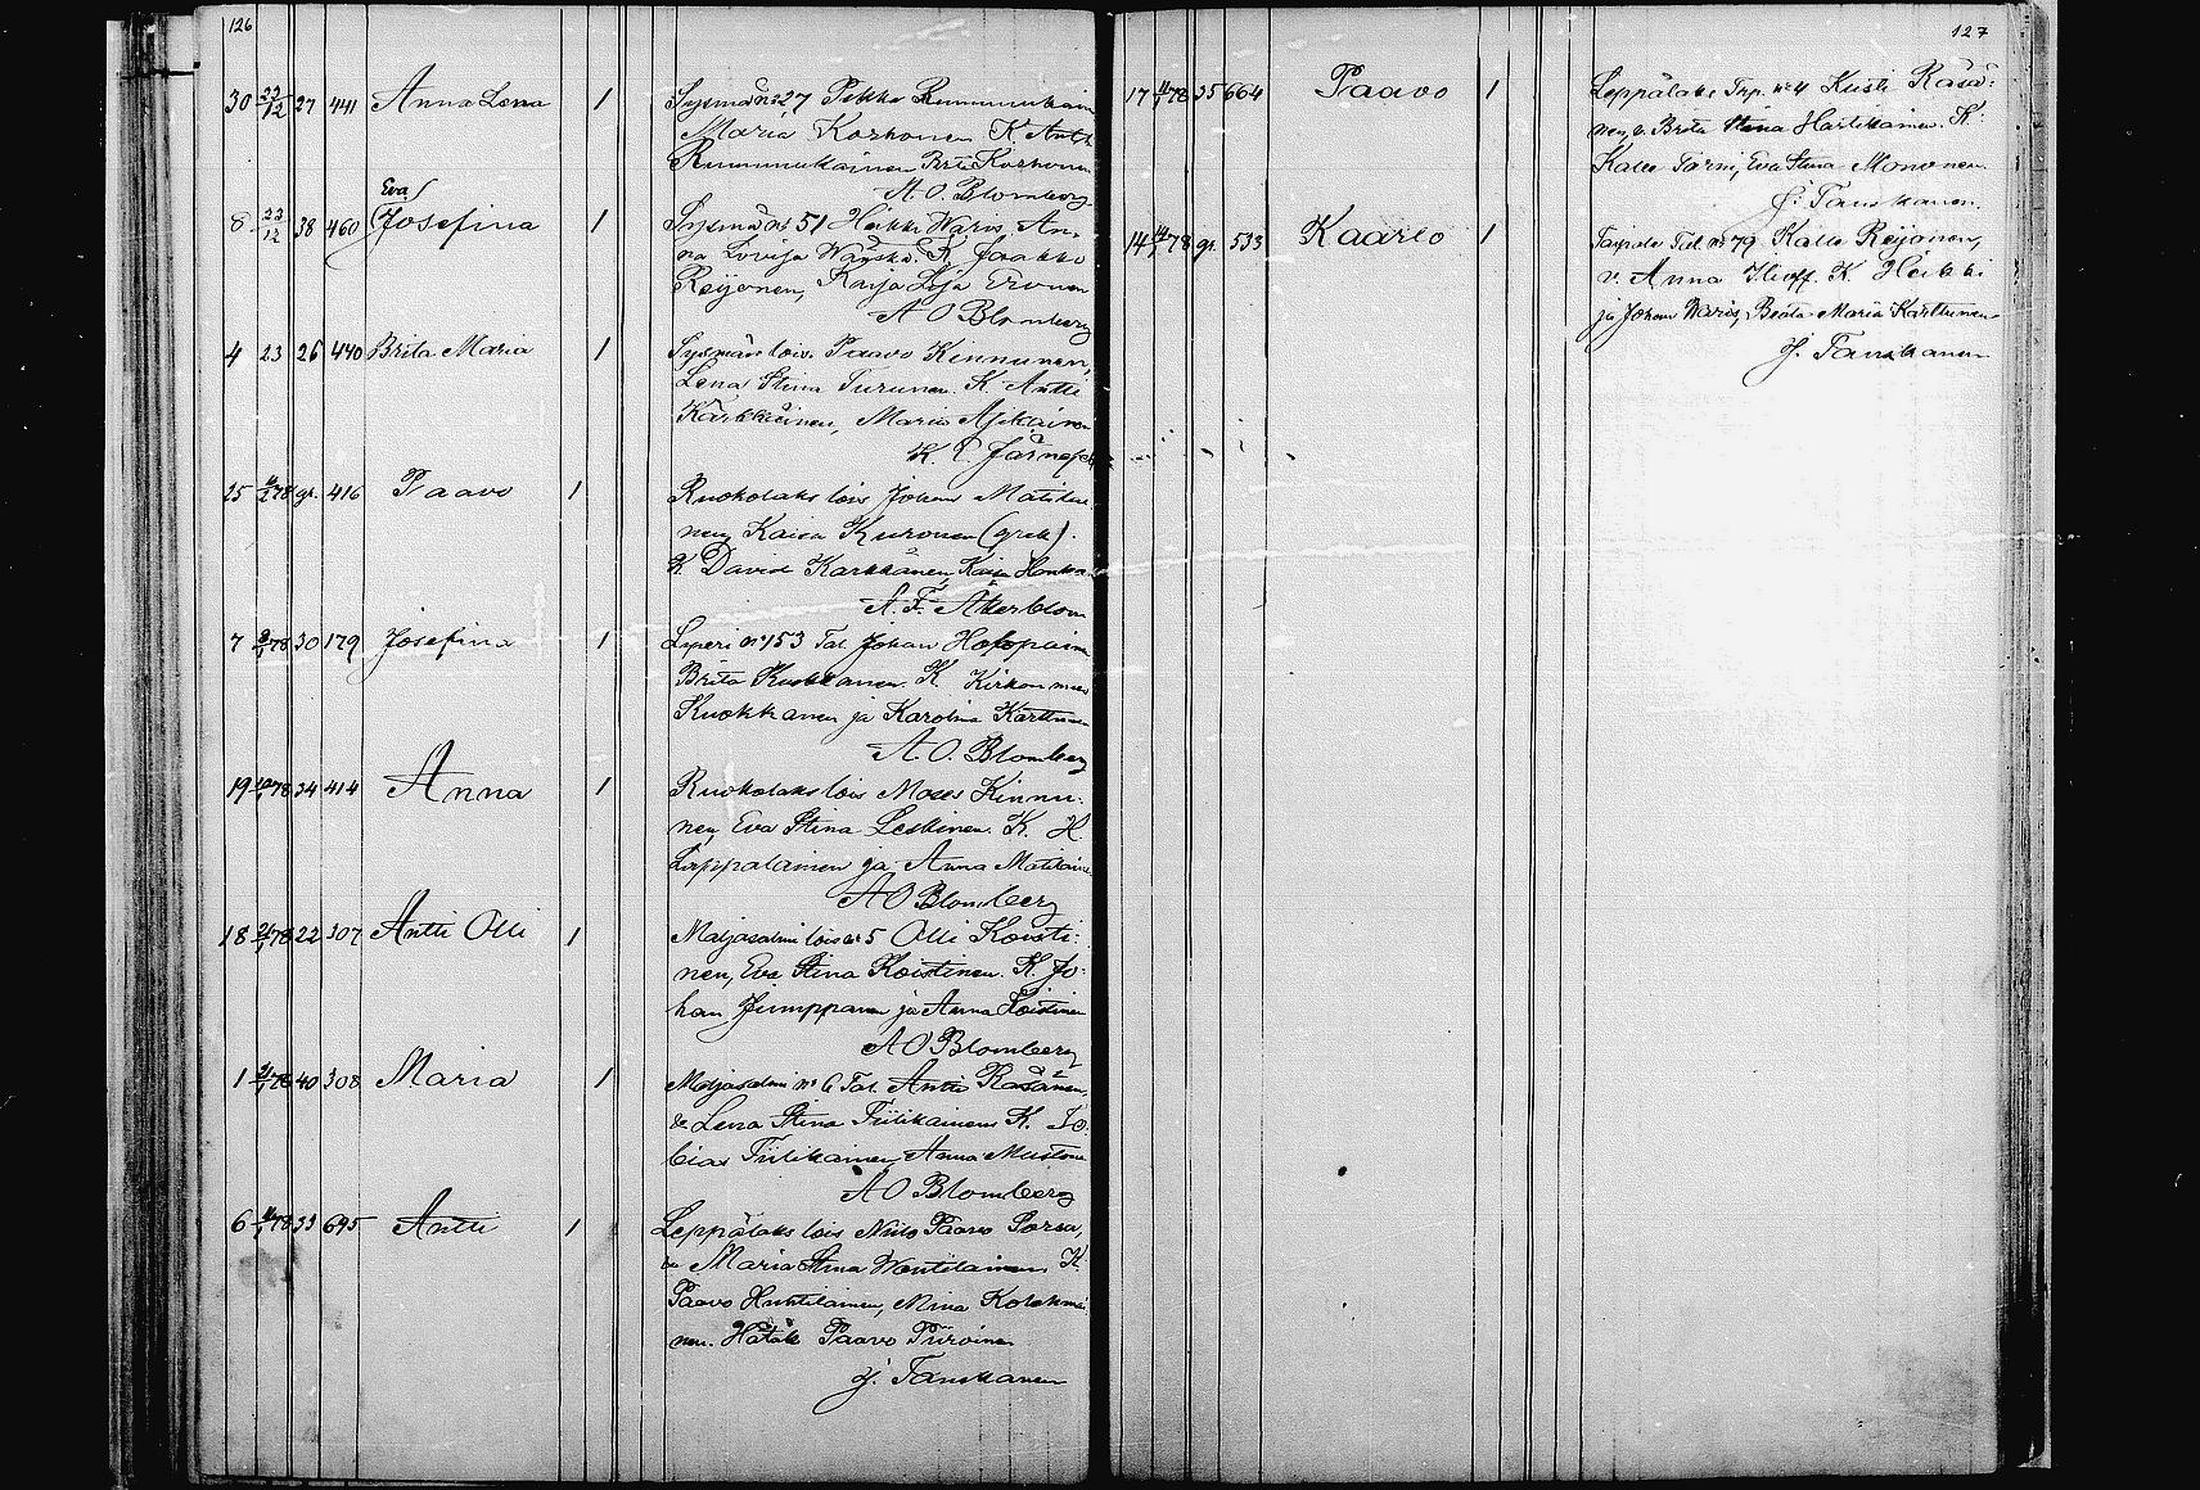 126
30 23/12 27 441 Anna Lena 1 Sysmä No 27 Pekka Rummukain
Maria Korhonen K. Antti
Rummukainen Brita Korhonen
A. O. Blomberg
Eva
8 23/12 38 460 Josefina 1 Sysmä No 51 Heikki Waris An-
na Lovisa Wänskä. K. Jaakko
Reijonen, Kaija Lisa Eronen
A O Blomberg
4 23 26 440 Brita Maria 1 Sysmän lois. Paavo Kinnunen,
Lena Stina Turunen. K. Antti
Kärkkäinen, Maria
K. Järnef
25 gr. 416 Paavo 1 Ruokolaks lois Johan Matilai
nen, Kaisa Kuronen (grek).
K. David Karkkänen, Kaisa
A. F. Åkerblom
7 78 30 179 Josefina 1 Liperi No 153 Tal. Johan Holopainen
Brita Kuokkanen. K. Kirkonmies
Kuokkanen ja Karolina Karttunen
A. O. Blomberg
19 78 34 414 Anna 1 Ruokolaks lois Moses Kinnu:
nen, Eva Stina Leskinen. K. H.
Lappalainen ja Anna Matilaine
A O Blomberg
18 21/1 78 22 307 Antti Olli 1 Maljasalmi lois No 5 Olli Koisti:
nen, Eva Stina Koistinen. K. Jo:
han Jumppanen ja Anna Koistinen
A O Blomberg
1 21/1 78 40 308 Maria 1 Maljasalmi No 6 Tal. Antti Räsänen,
& Lena Stina Tiilikainen K. To:
bias Tiilikainen, Anna Mustone
A O Blomberg
6 78 33 695 Antti 1 Leppälaks lois Niilo Paavo Sorsa,
Maria Stina Wäntilainen K.
Paavo Huttilainen, Mina Kolehmai
nen. Hätäk Paavo Piiroinen
J. Tanskanen
127
17 78 35 664 Paavo 1 Leppälaks Trp. No 4 Kusti Räsä:
nen, v. Brita Stina Hartikainen. K:
Kalle Tarni, Eva Stina Mononen.
J. Tanskanen.
14 14/1 78 gr. 533 Kaarlo 1 Taipale Till. No 79 Kalle Reijonen,
v. Anna Ilioff. K. Heikki
ja Johan Waris, Beata Maria Karttunen
J. Tanskanen